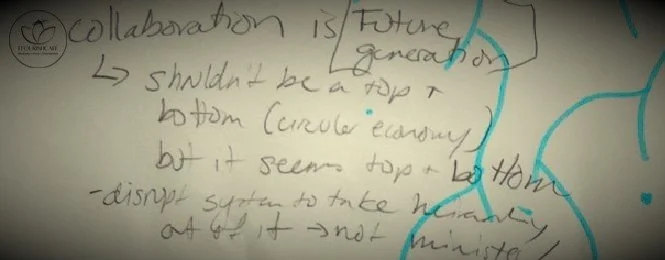 collaboration is [Future
generation]
↳ shouldn't be a top +
bottom (circular economy)
but it seems top + bottom
- disrupt system to take hierarchy
out of it → not